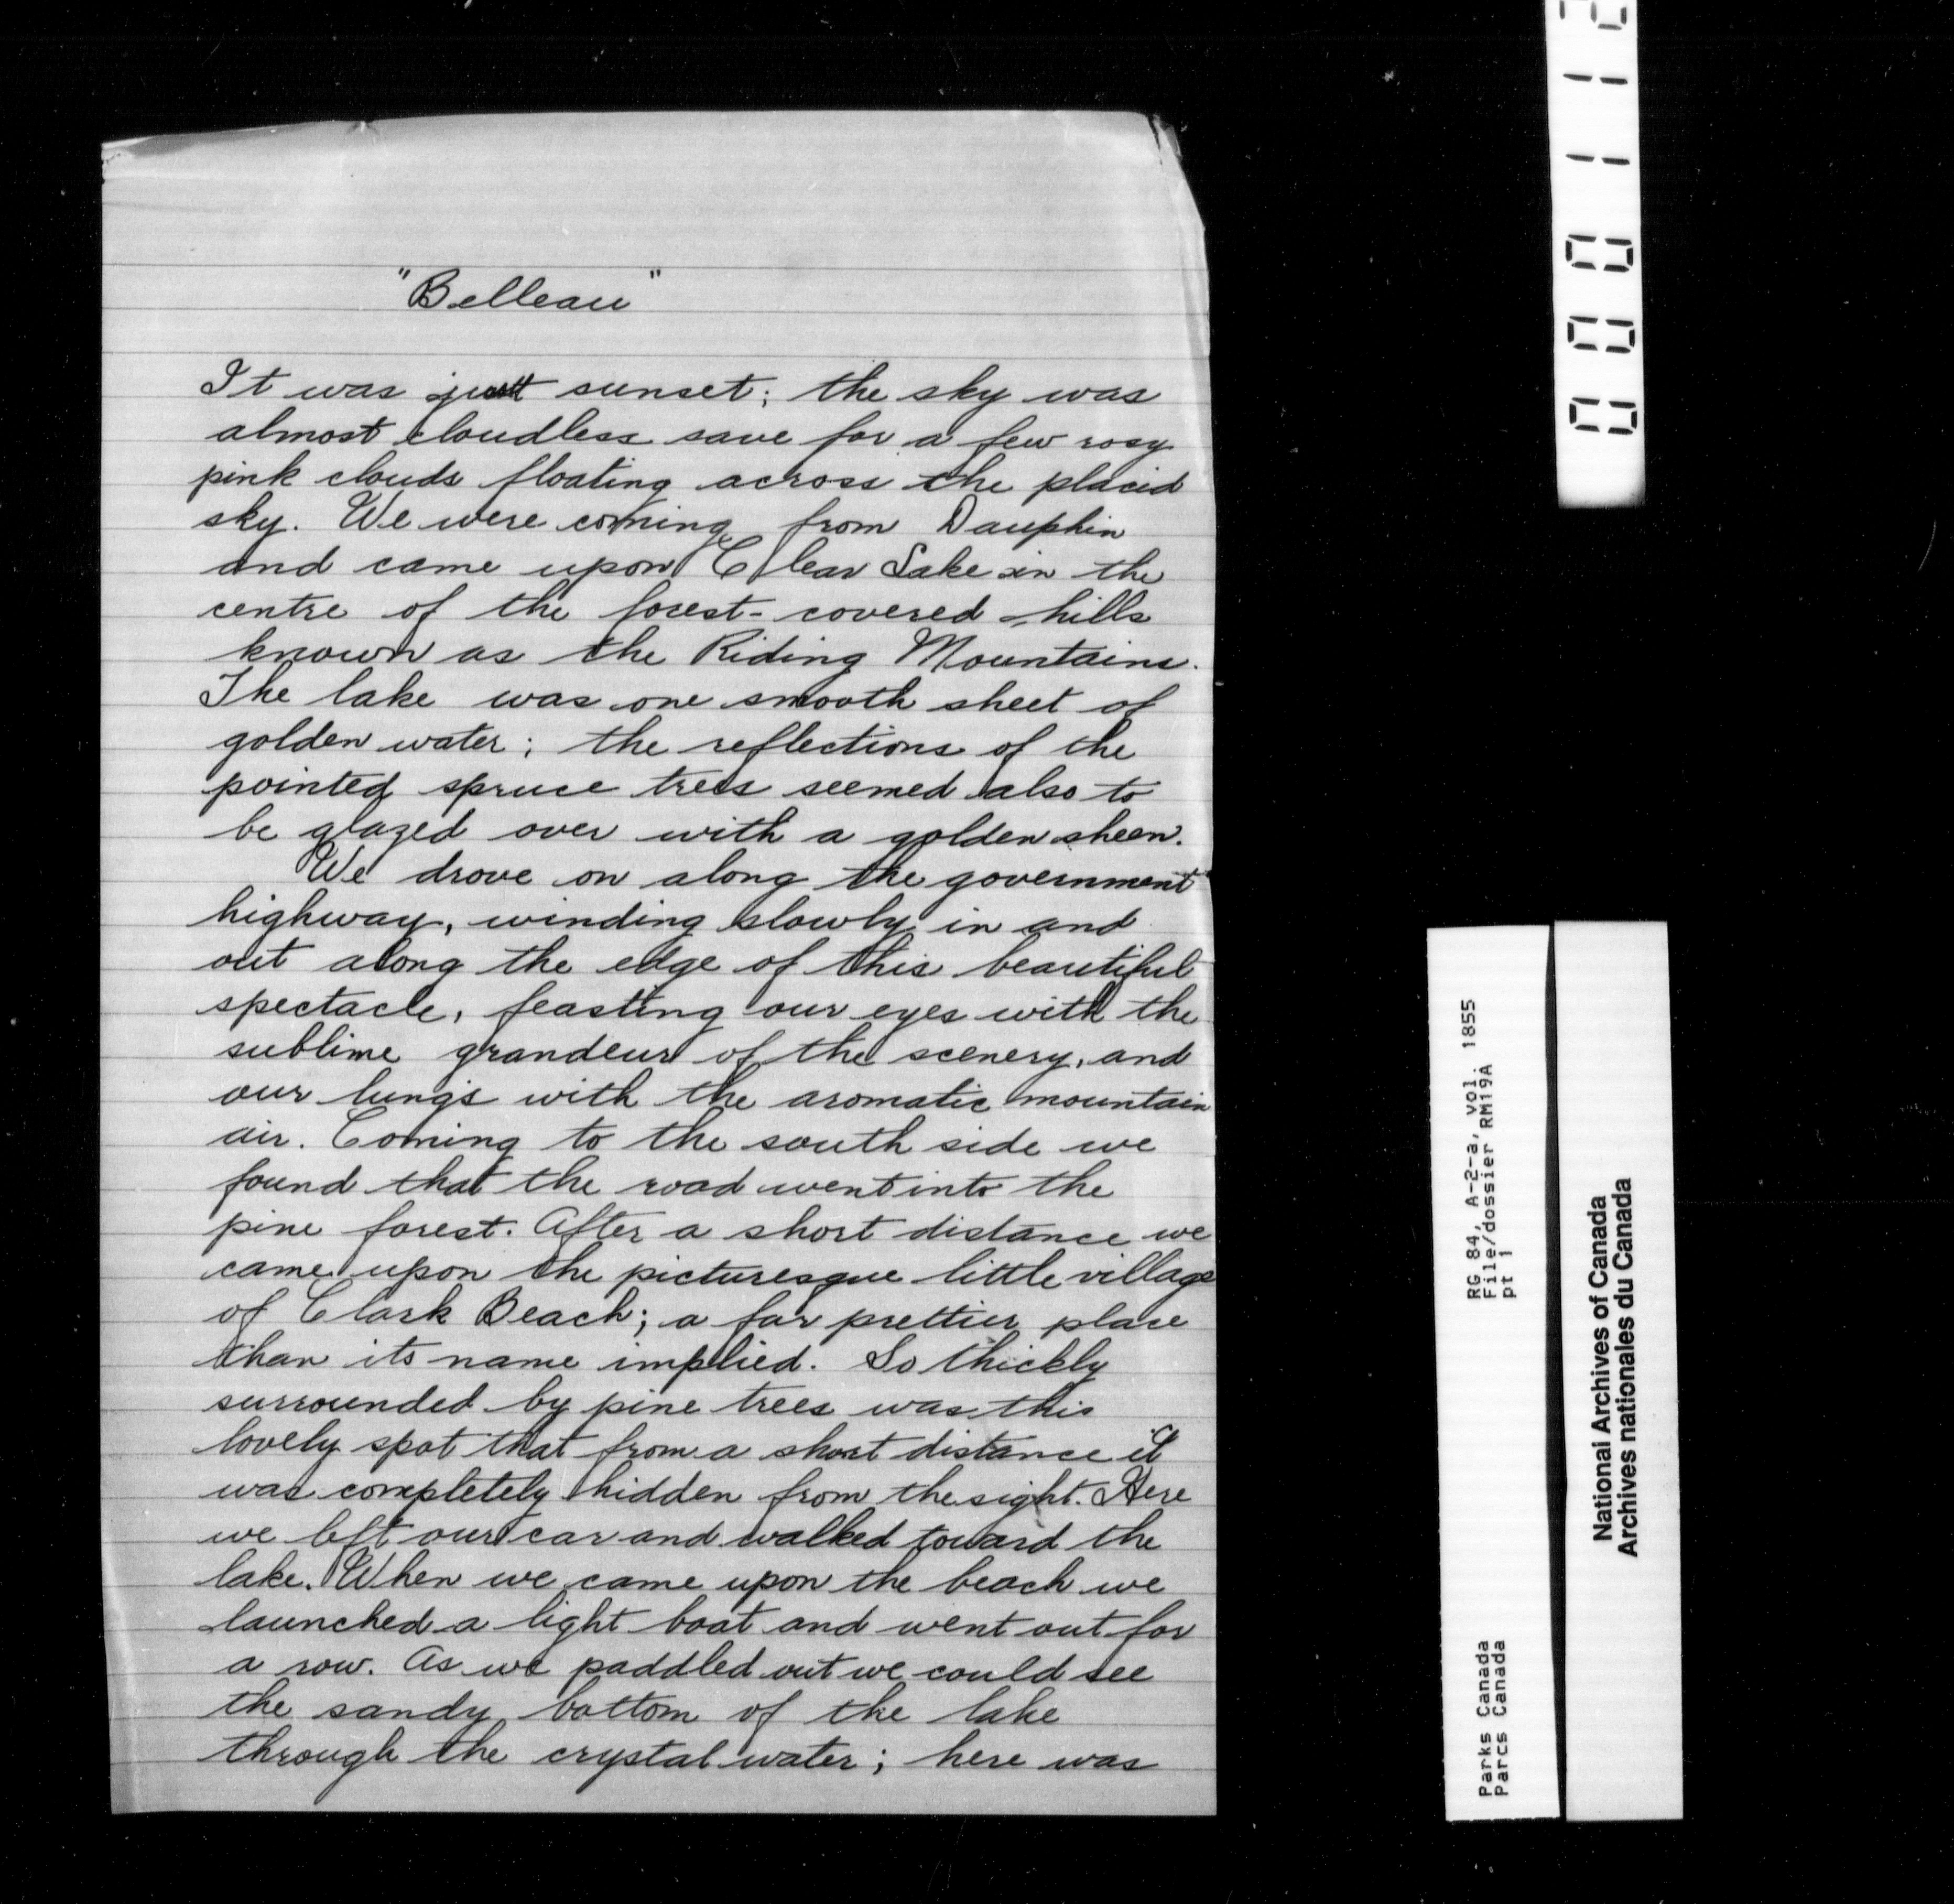 "Belleau"
It was just sunset; the sky was
almost cloudless save for a few rosy
pink clouds floating across the placid
sky. We were coming from Dauphin
and came upon Clear Lake in the
centre of the forest-covered hills
known as the Riding Mountains.
The lake was one smooth sheet of
golden water; the reflections of the
pointed spruce trees seemed also to
be glazed over with a golden sheen.
We drove on along the government
highway, winding slowly in and
out along the edge of this beautiful
spectacle, feasting our eyes with the
sublime grandeur of the scenery, and
our lungs with the aromatic mountain
air. Coming to the south side we
found that the road went into the
pine forest. After a short distance we
came upon the picturesque little village
of Clark Beach; a far prettier place
than its name implied. So thickly
surrounded by pine trees was this
lovely spot that from a short distance it
was completely hidden from the sight. Here
we left our car and walked toward the
lake. When we came upon the beach we
launched a light boat and went out for
a row. As we paddled out we could see
the sandy bottom of the lake
through the crystal water; here was
Parks Canada RG 84, A-2-a, vol. 1855
Parcs Canada File/dossier RM19A
pt 1
National Archives of Canada
Archives nationales du Canada